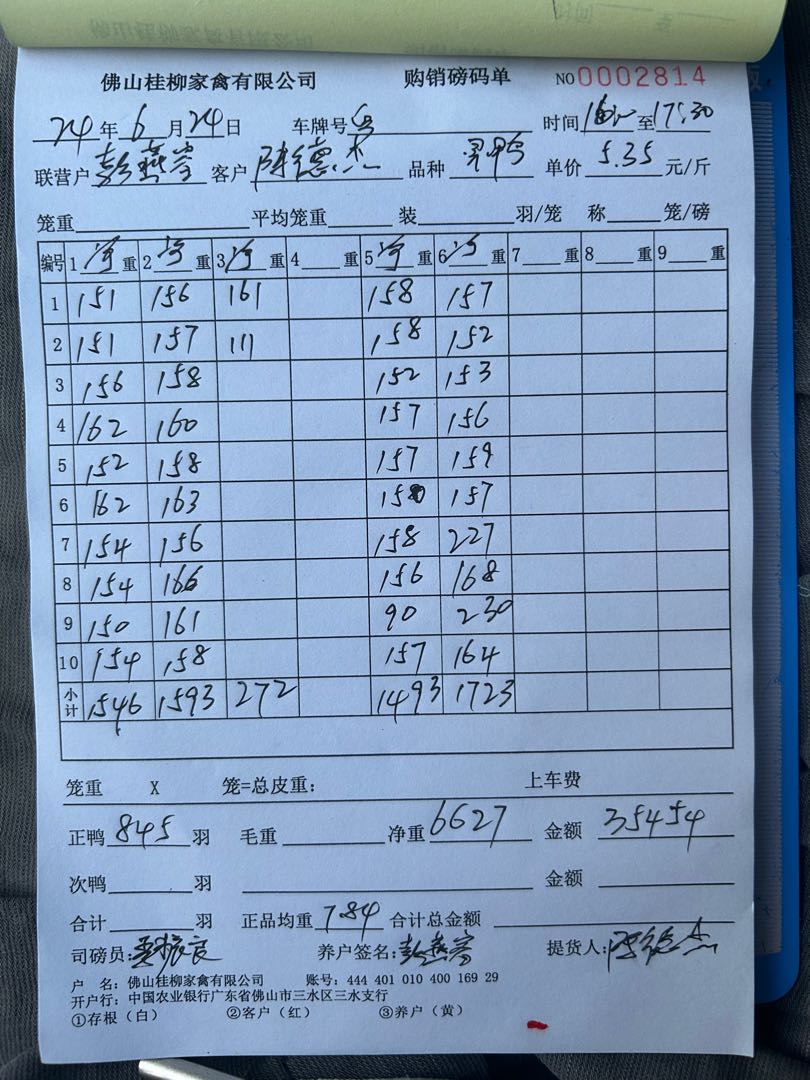 佛山桂柳家禽有限公司 购销磅码单 NO 0002814
24年6月24日 车牌号 时间 至17:30
联营户 彭燕 客户 陈德杰 品种 单价 5.35 元/斤
笼重 平均笼重 装 羽/笼 称 笼/磅
编号 1净重 2净重 3净重 4 重 5净重 6净重 7 重 8 重 9 重
1 151 156 161 158 157
2 151 157 111 158 152
3 156 158 152 153
4 162 160 157 156
5 152 158 157 159
6 162 163 150 157
7 154 156 158 227
8 154 166 156 168
9 150 161 90 230
10 154 158 157 164
小计 1546 1593 272 1493 1723
笼重 X 笼=总皮重: 上车费
正鸭 845 羽 毛重 净重 6627 金额 35454
次鸭 羽 金额
合计 羽 正品均重 784 合计总金额
司磅员: 养户签名: 彭燕 提货人: 陈德杰
户 名: 佛山桂柳家禽有限公司 账号: 444 401 010 400 169 29
开户行: 中国农业银行广东省佛山市三水区三水支行
①存根(白) ②客户(红) ③养户(黄)